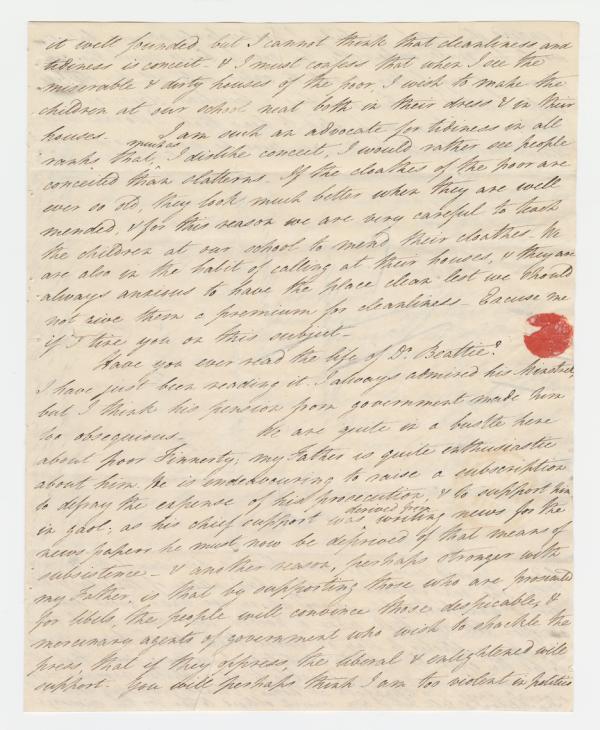 it well founded, but I cannot think that cleanliness and
tidiness is conceit. & I must confess that when I see the
miserable & dirty houses of the poor, I wish to make the
children at our school neat both in their dress & in their
houses. I am such an advocate for tidiness in all
ranks that, much as I dislike conceit, I would rather see people
conceited than slatterns. If the cloathes of the poor are
ever so old, they look much better when they are well
mended, & for this reason we are very careful to teach
the children at our school to mend their cloathes. We
are also in the habit of calling at their houses, & they are
always anxious to have the place clean lest we should
not give them a premium for cleanliness – Excuse me
if I tire you on this subject –
Have you ever read the life of Dr. Beattie?
I have just been reading it. I always admired his Minstrel,
but I think his pension from government made him
too obsequious. – We are quite in a bustle here
about poor Finnerty; my Father is quite enthusiastic
about him. He is endeavouring to raise a subscription
to defray the expense of his prosecution, & to support him
in gaol; as his chief support was derived from writing news for the
news papers he must now be deprived of that means of
subsistence – & another reason, perhaps stronger with
my Father, is that by supporting those who are prosecuted
for libels, the people will convince those despicable, &
mercenary agents of government who wish to shackle the
press, that if they oppress, the liberal & enlightened will
support. You will perhaps think I am too violent in politics